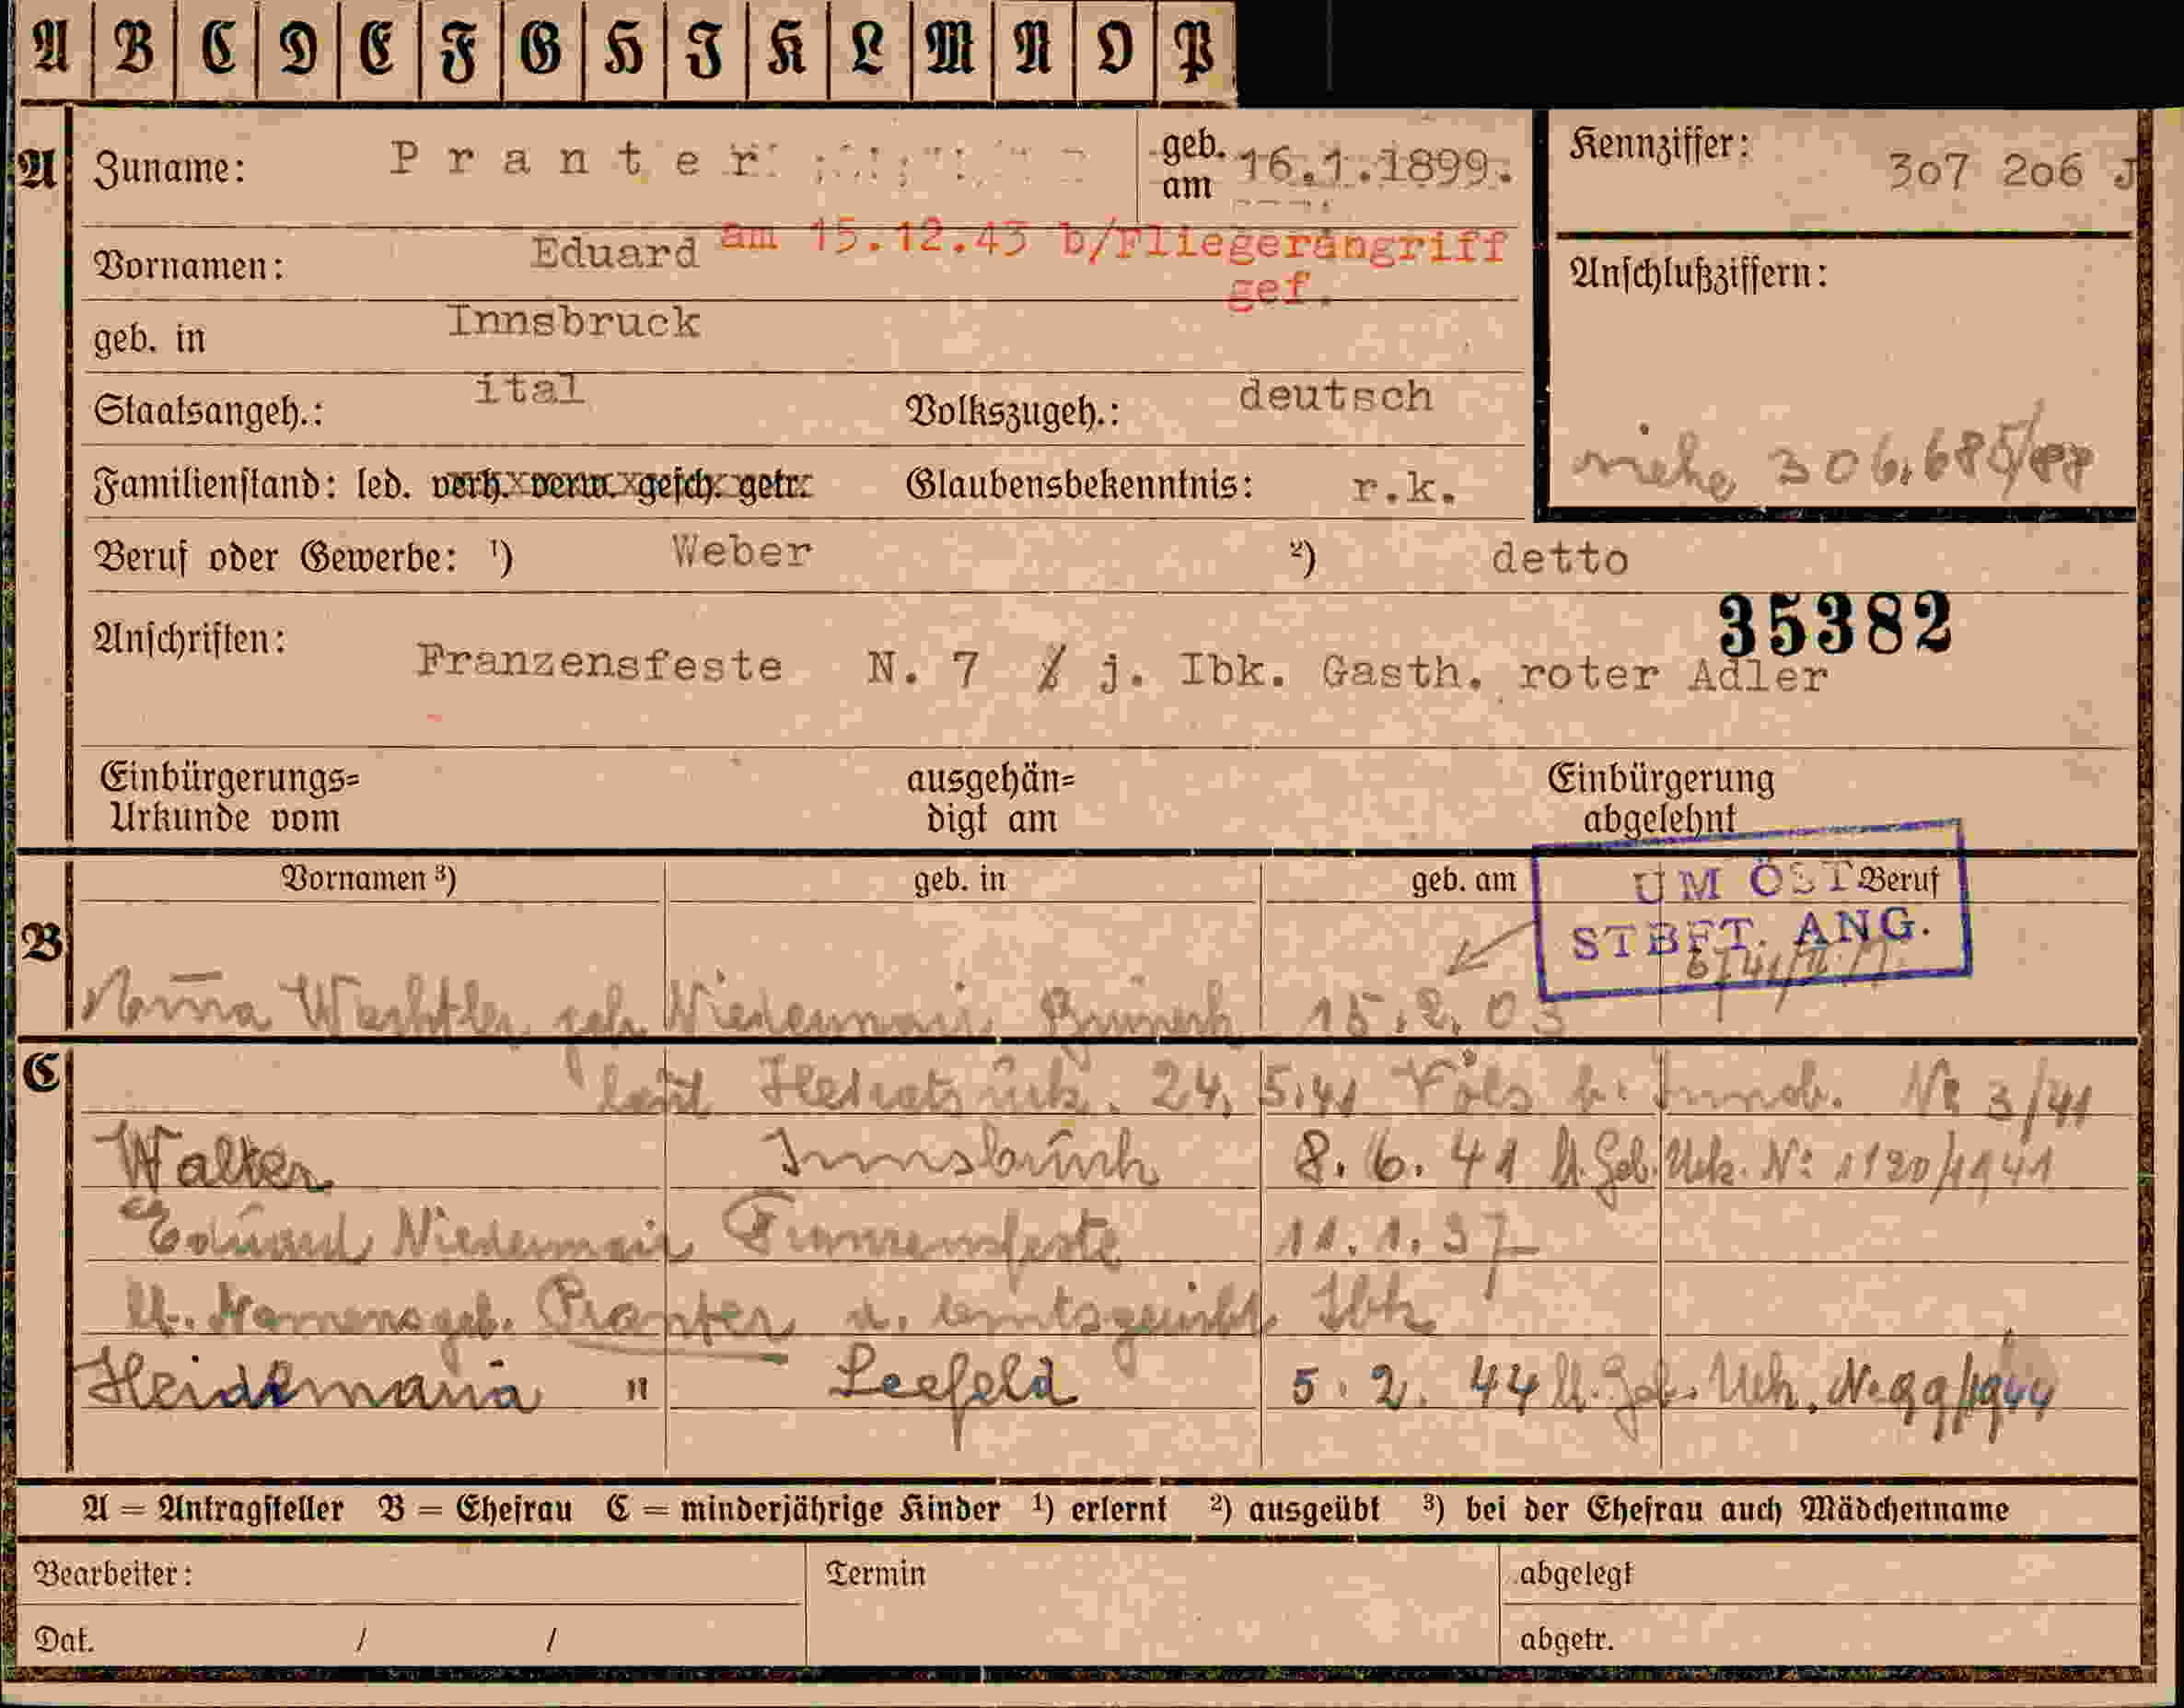 A B C D E F G H I K L M N O P
A Zuname: Pranter geb. am 16.1.1899. Kennziffer: 307 206 J
Vornamen: Eduard am 15.12.43 b/Fliegerangriff
gef.
Anschlußziffern:
geb. in Innsbruck
Staatsangeh.: ital Volkszugeh.: deutsch
siehe 306.685/
Familienstand: led. verh. verw. gesch. getr. Glaubensbekenntnis: r.k.
Beruf oder Gewerbe: ¹) Weber ²) detto
35382
Anschriften: Franzensfeste N. 7 j. Ibk. Gasth. roter Adler
Einbürgerungs= ausgehän= Einbürgerung
Urkunde vom digt am abgelehnt
Vornamen ³) geb. in geb. am Beruf
UM ÖST
STBFT. ANG.
B
Wachtler geb Niedermair 15.2.03
C laut Heirats urk. 24.5.41 Völs b. Innsb. No 3/41
Walter Innsbruck 8.6.41 lt. Geb. Urk. No 1120/1941
Eduard Niedermair Franzensfeste 11.1.37
lt. Namensgeb. Pranter Amtsgericht Ibk
Heidemaria " Seefeld 5.2.44 lt. Geb. Urk. N. 99/1944
A = Antragsteller B = Ehefrau C = minderjährige Kinder ¹) erlernt ²) ausgeübt ³) bei der Ehefrau auch Mädchenname
Bearbeiter: Termin abgelegt
Dat. / / abgetr.